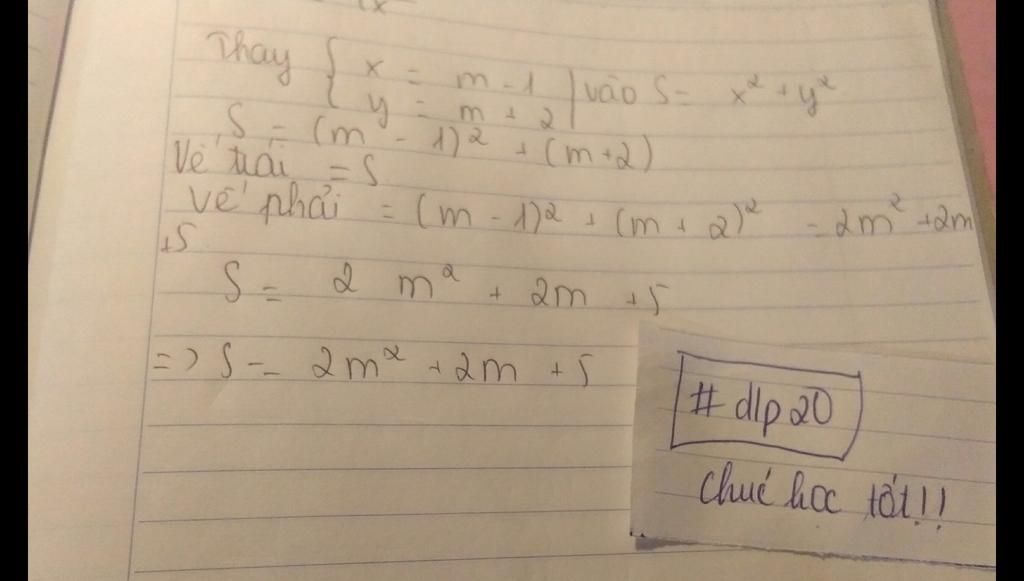 Thay { x = m - 1 | vào S = x² + y²
y = m + 2
S = (m - 1)² + (m+2)
Vế trái = S
Vế phải = (m - 1)² + (m + 2)² = 2m² + 2m
+5
S = 2 m² + 2m + 5
=> S = 2m² + 2m + 5
# dlp20
Chuć học tốt!!